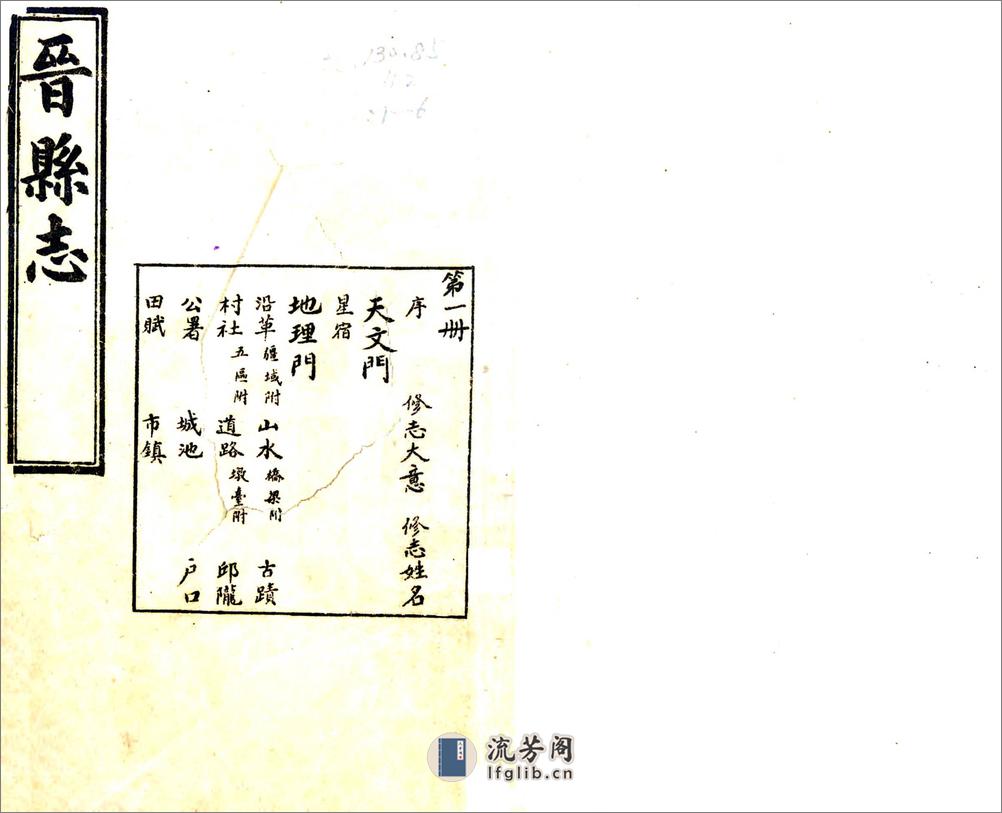 晉縣志
第一册
序 修志大意 修志姓名
天文門
星宿
地理門
沿革 疆域附 山水 橋梁附 古蹟
村社 五區附 道路 墩臺附 邱隴
公署 城池 户口
田賦 市鎮
流芳阁
lfglib.cn